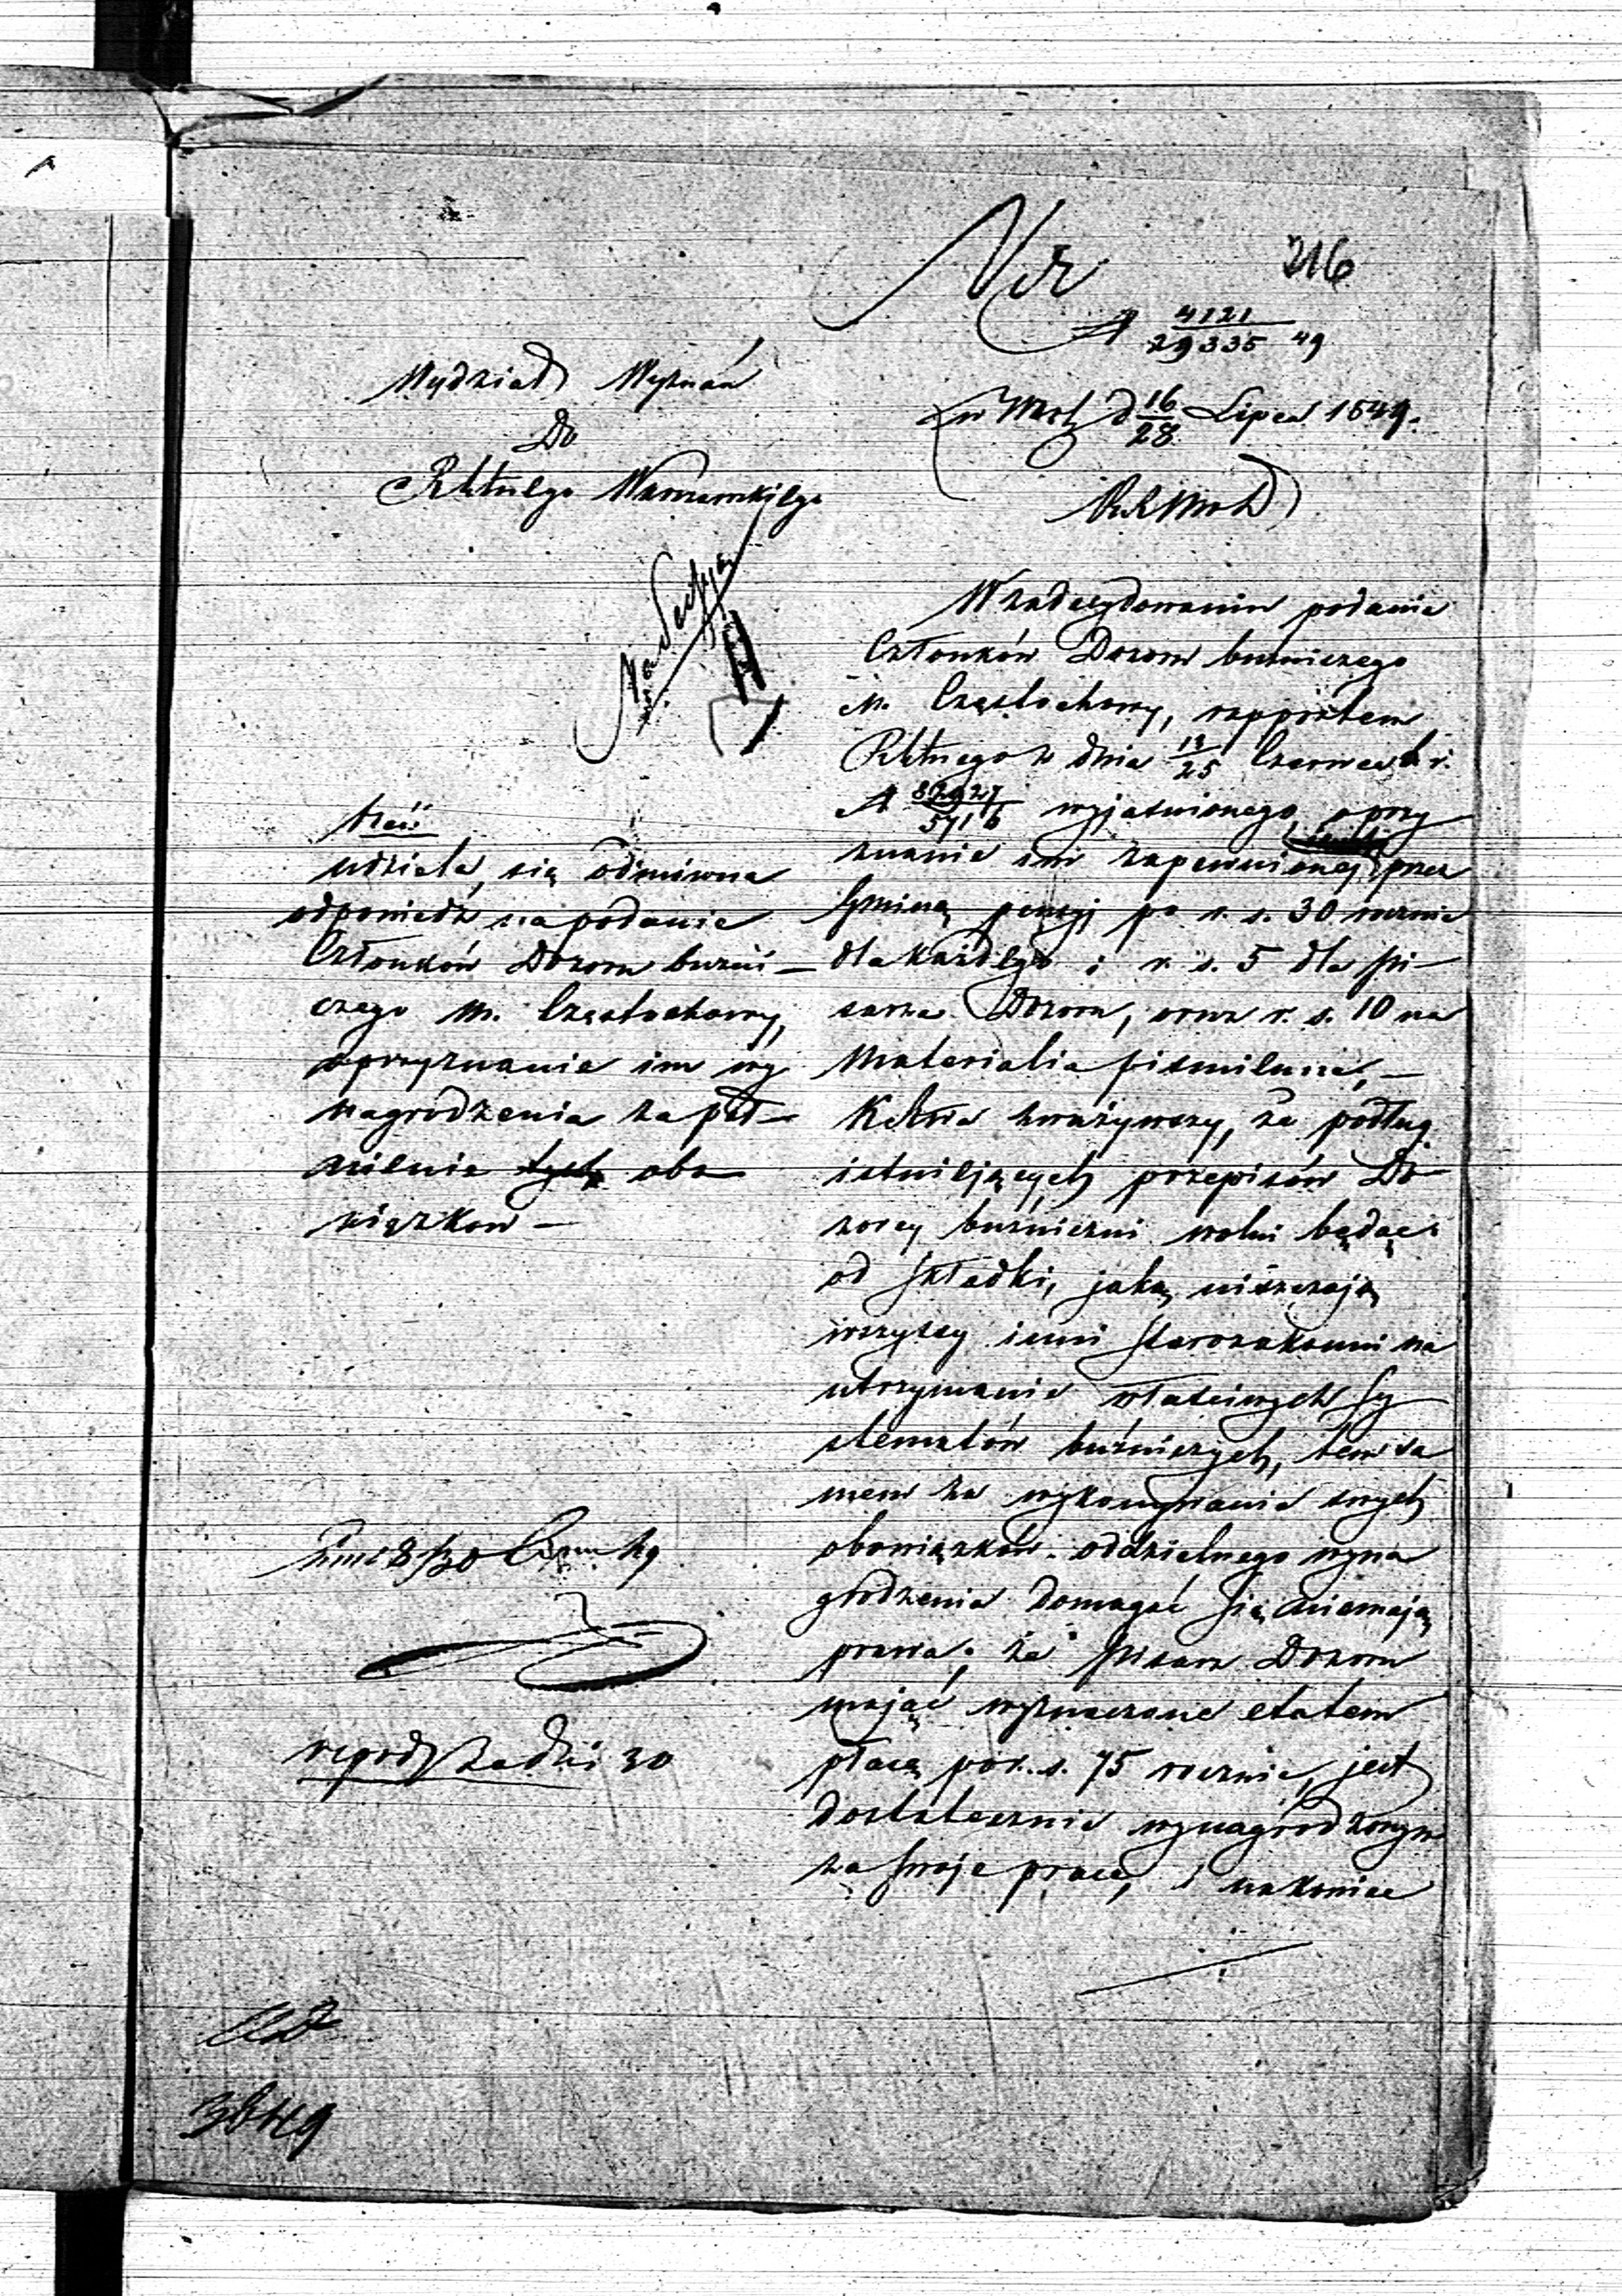 216
Nr
4121
29335 49
Wydział Wyznań
Do
Rządu Warszawskiego
d 16/28 Lipca 1849.
W zadecydowaniu podania
Członków Dozoru bużniczego
m. Częstochowy, rapportem
z dnia 13/25 Czerwca b. r.
wyjaśnionego, o przy
znanie im zapewnionej przez
Gminę pensyj po r. s. 30 rocznie
dla każdego i r. s. 5 dla pi—
sarza Dozoru, oraz r. s. 10 na
materialia piśmienne,—
zważywszy, że podług
istniejących przepisów Do—
zorcy bużniczni wolni będąc
od składki, jaką uiszczają
wszyscy inni starozakonni na
utrzymanie właściwych Sy
stematów bużniczych, tem sa
mem za wykonywanie swych
obowiązków oddzielnego wyna
grodzenia domagać się niemają
prawa; że pisarz Dozoru
mając wyznaczone etatem
płacę po r. s. 75 rocznie, jest
dostatecznie wynagrodzonym
za swoje pracę, i nakoniec
treść
udziela się odmowna
odpowiedź na podanie
Członków Dozoru bużni—
czego m. Częstochowy,
o przyznanie im wy
nagrodzenia za peł—
nienie tych obo
wiązkow—